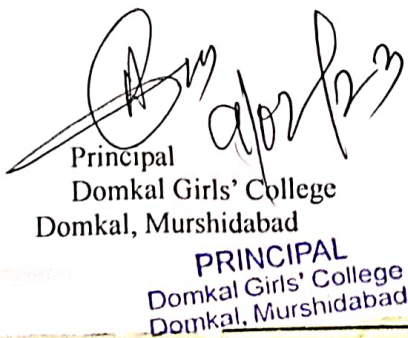 Principal
Domkal Girls' College
Domkal, Murshidabad
PRINCIPAL
Domkal Girls' College
Domkal, Murshidabad